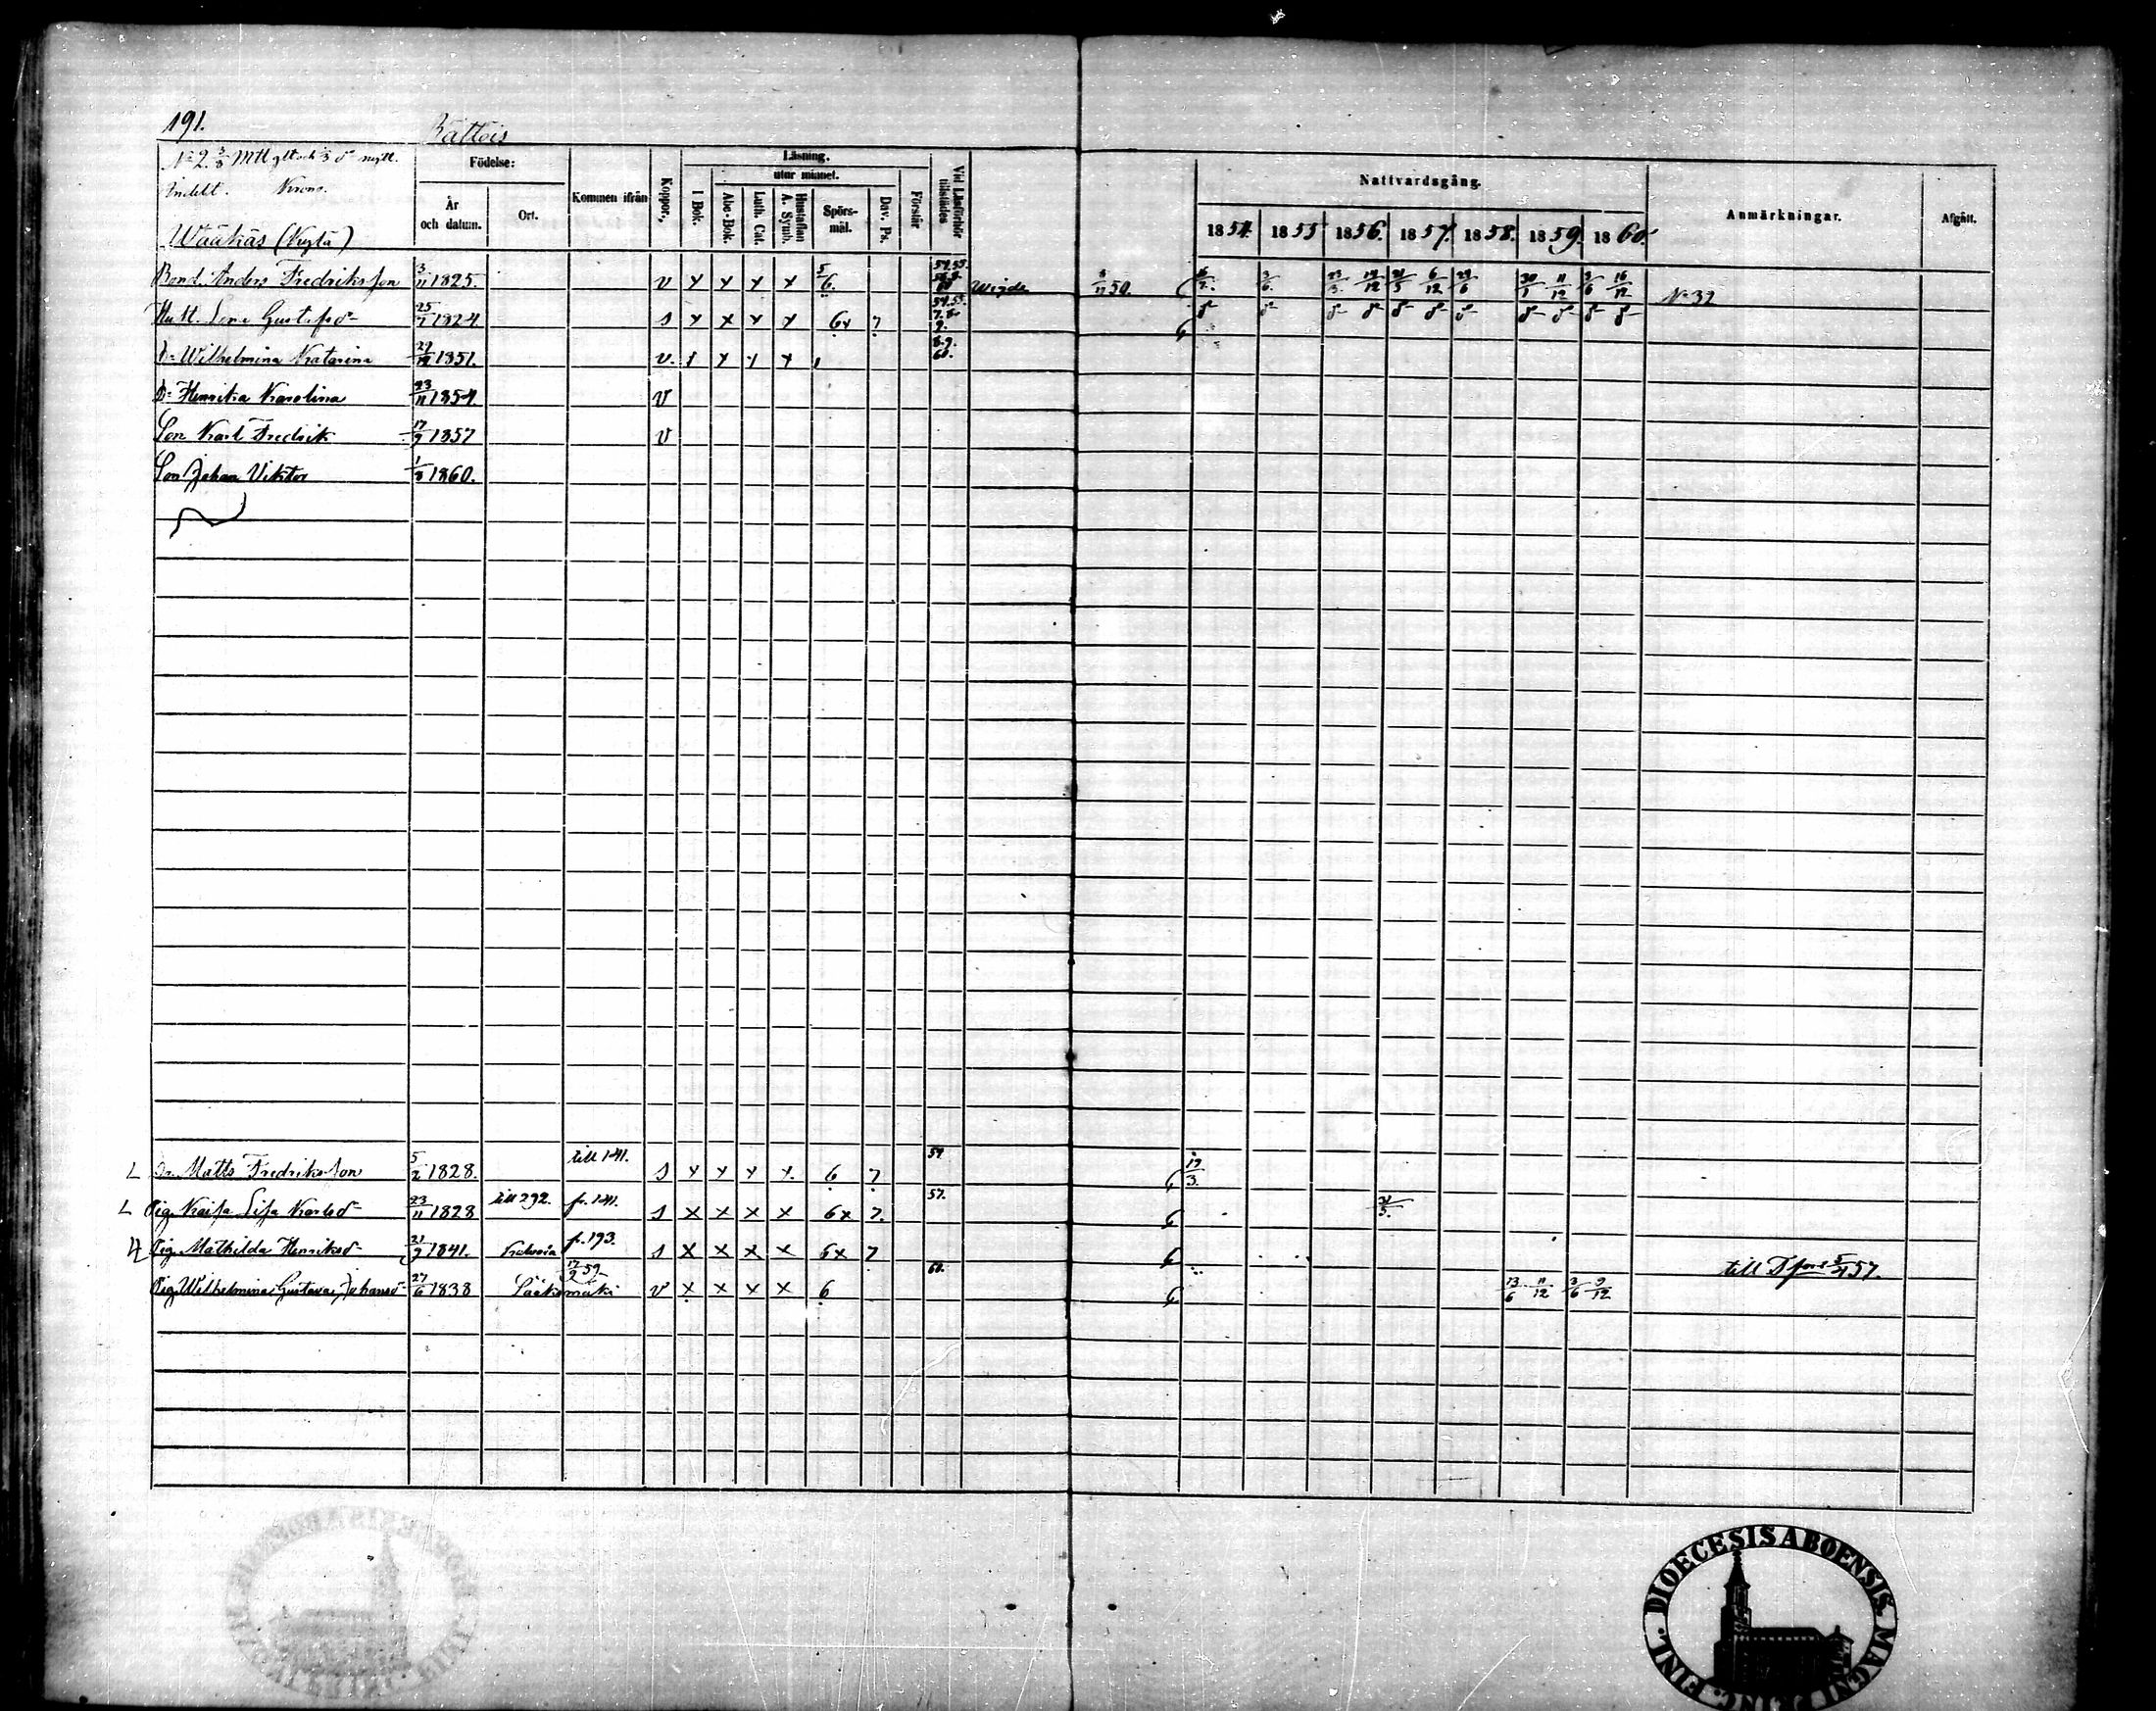 191.
Rättois
No 2. 3/8 Mtl
Indelt. Krono.
Wääkäs (Kyla)
Födelse:
År och datum.
Ort.
Kommen ifrån
Koppor.
Läsning.
utur minnet.
I Bok.
Abc-Bok.
Luth. Cat.
Hustaflan A. Symb.
Spörs-mål.
Dav. Ps.
Förstår
Vid Läsförhör tillstädes
Nattvardsgång.
1854. 1855 1856. 1857. 1858. 1859. 1860.
Anmärkningar.
Afgått.
Bond. Anders Fredriksson 3/11 1825. v x x x x 5/6. Wigde 50. No 32
Hust. Lena Gustafsd- 25/7 1824 s x x x x 6x 7
Dr Wilhelmina Katarina 29/12 1851. v. x x x 8.9. 60.
Dr Henrika Karolina 23/11 1854 v
Son Karl Fredrik 17/9 1857 v
Son Johan Viktor 1/8 1860.
Dr. Matts Fredriksson 5/2 1828. till 141. s x x x x. 6 7 54 19/3.
Pig. Kaisa Lisa Karlsd- 23/11 1828 till 292. fr. 141. s x x x x 6x 7. 57.
Pig. Mathilda Henriksd- 21/9 1841. fr. 193. s x x x x 6x 7 till 57.
Pig. Wilhelmina Gustava Johansd- 27/6 1838 Sääksmäki 17/9 59 v x x x x 6 60. 13/6 11/12 3/6 9/12
DIOECESIS ABOENSIS. MAGNI PRINC. FINL.